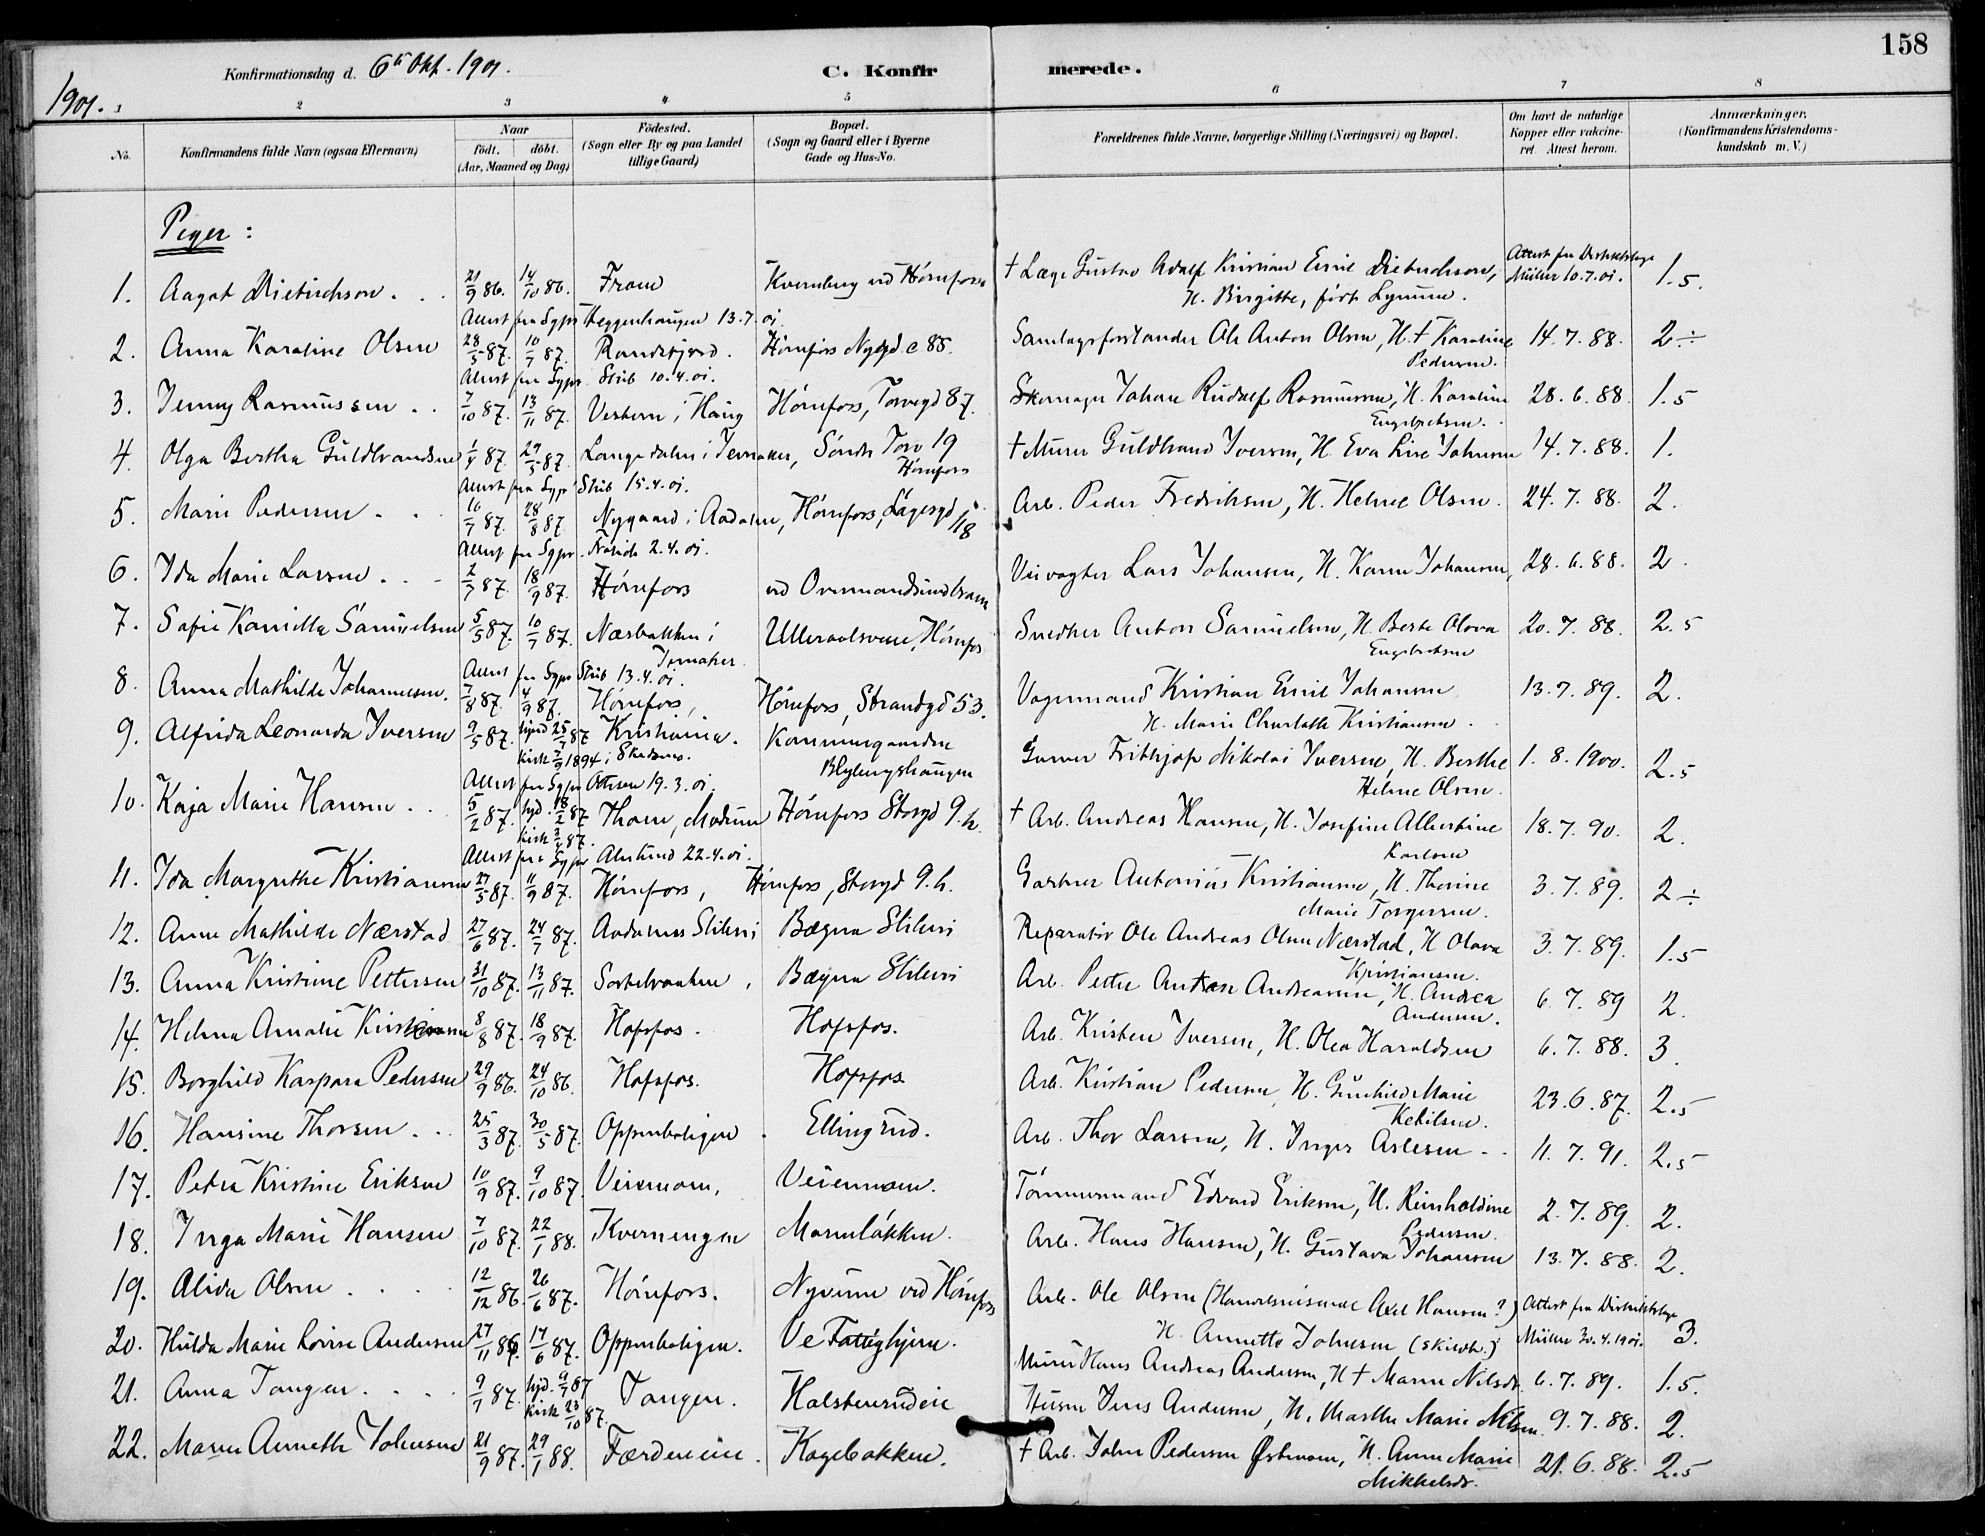 158
Konfirmationsdag d. 6te Okt. 1901. C. Konfirmerede.
1901.
1 2 3 4 5 6 7 8
No. Konfirmandens fulde Navn (ogsaa Efternavn) Naar født. døbt. (Aar, Maaned og Dag) Fødested. (Sogn eller By og paa Landet tillige Gaard) Bopæl. (Sogn og Gaard eller i Byerne Gade og Hus-No. Forældrenes fulde Navne, borgerlige Stilling (Næringsvei) og Bopæl. Om havt de naturlige Kopper eller vakcineret. Attest herom. Anmærkninger. (Konfirmandens Kristendomskundskab m. V.)
Piger:
1. Aagot Dietrichson. 21/9 86. 14/10 86. Fron Kvernberg ved Hønefoss † Læge Gustav Adolf Kristian Emil Dietrichson, H. Birgitte, født Lynum. Attest fra Distriktslæge Müller 10.7.01. 1.5.
Attest fra Sgpr Heggenhaugen 13.7.01.
2. Anna Karoline Olsen 28/5 87. 10/7 87. Randsfjord. Hønefos Nygd c 85. Samlagsforstander Ole Anton Olsen, H. † Karoline Pedersen. 14.7.88. 2÷
Attest fra Sgpr. Stub 10.4.01.
3. Jenny Rasmussen.. 7/10 87. 13/11 87. Vestern i Haug Hønefoss, Torvegd 87. Skomager Johan Rudolf Rasmussen, H. Karoline Engebretsen. 28.6.88. 1.5
4. Olga Bertha Guldbrandsen 1/4 87. 29/5 87. Langedalen i Jevnaker, Søndre Torv 19 Hønefoss † Murer Guldbrand Iversen, H. Eva Lise Johnsen 14.7.88. 1.
Attest fra Sgpr Stub 15.4.01.
5. Marie Pedersen.. 16/7 87. 28/8 87. Nygaard i Aadalen, Hønefoss, Lagesgd 18 Arb. Peder Fredriksen, H. Helene Olsen. 24.7.88. 2.
Attest fra Sgpr. 2.4.01.
6. Ida Marie Larsen... 2/7 87. 18/9 87. Hønefoss ved Overmandsind Vei vogter Lars Johansen, H. Karen Johansen, 28.6.88. 2.
7. Sofie Kamilla Samuelsen 5/5 87. 10/7 87. Næsbakken i Jevnaker. Ulleraalsveien, Hønefos Snedker Anton Samuelsen, H. Berte Olava Engebretsen 20.7.88. 2.5
Attest fra Sgpr Stub 13.4.01.
8. Anna Mathilde Johannesen. 7/8 87. 4/9 87. Hønefoss, Hønefoss, Strandgd 53. Vognmand Kristian Emil Johansen H. Marie Charlotte Kristiansen. 13.7.89. 2.
9. Alfrida Leonarda Iversen 9/5 87. hjmd 25/7 87 Kirk 2/9 1894 i Skedsmo. Kristiania. Kommegaarden Blybergshaugen Garver Frithjof Nikolai Iversen, H. Berthe Helene Olsen. 1.8.1900. 2.5
Attest fra Sgpr Ottesen 19.3.01.
10. Kaja Marie Hansen.. 5/2 87. hjd. 18/2 87 Kirk 87. Thoen, Modum Hønefoss Storgd 9.h. † Arb. Andreas Hansen, H. Josefine Albertine Karlsen 18.7.90. 2.
Attest fra Sgpr Alstrud 22.4.01.
11. Ida Margrethe Kristiansen 27/5 87. 11/9 87. Hønefoss, Hønefoss, Storgd 9.h. Gartner Antonius Kristiansen, H. Thorine Marie Torgersen. 3.7.89. 2÷
12. Anne Mathilde Nærstad 27/6 87. 24/7 87. Aadalens Sliberi Bægna Sliberi Reparatør Ole Andreas Olsen Nærstad, H Olava Kristiansen. 3.7.89. 1.5
13. Anna Kristine Pettersen 31/10 87. 13/11 87. Sorkelraaken, Bægna Sliberi Arb. Petter Anton Andreasen, H. Andrea Andersen. 6.7.89 2.
14. Helma Amalie Kristensen 8/8 87. 18/9 87. Hofsfos. Hofsfos. Arb. Kristen Iversen, H. Olea Haraldsen 6.7.88. 3.
15. Borghild Kaspara Pedersen 29/9 86. 24/10 86. Hofsfos. Hofsfos Arb. Kristian Pedersen, H. Gunhild Marie Ketilsen. 23.6.87. 2.5
16. Hansine Thorsen... 25/3 87. 30/5 87. Oppenboligen. Ellingrud. Arb. Thor Larsen, H. Inger Aslesen.. 11.7.91. 2.5
17. Petra Kristine Eriksen 10/9 87. 9/10 87. Veienmoen, Veienmoen. Tømmermand Edvard Eriksen, H. Reinholdine Pedersen. 2.7.89. 2.
18. Inga Marie Hansen 7/10 87. 22/1 88. Kverningen Morenløkken. Arb. Hans Hansen, H. Gustava Johansen 13.7.88. 2.
19. Alida Olsen.... 12/12 86. 26/6 87. Hønefoss. Nyveien ved Hønefoss Arb. Ole Olsen (Handelsreisende Axel Hansen?) H. Annette Johnsen (skilt.) Attest fra Distriktslæge Müller 30.4.1901. 3.
20. Hulda Marie Lovise Andersen 27/11 86. 17/6 87. Oppenboligen. Ve Fattighjem. Murer Hans Andreas Andersen, H † Maren Nilsdr. 6.7.89. 1.5.
21. Anna Tangen.... 9/7 87. hjd. 9/7 87 Kirk 23/10 87. Tangen. Halstenrudeie Husm Jens Andersen, H. Marthe Marie Nilsen 9.7.88. 2.
22. Maren Annette Johnsen 21/9 87. 29/1 88. Færdeneie. Kagebakken. † Arb. John Pedersen Østmoen, H. Anne Marie Mikkelsdr. 21.6.88. 2.5